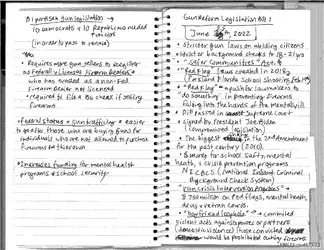 Bipartisan gun legislation →
10 democrats & 10 Republicans needed
(in order to pass the senate)
• Requires more gun sellers to register
as Federally Licensed Firearm Dealers
• who has evaded as a non-Fed
Firearm Dealer not licensed
• required to file a BG check if selling
firearms
• Federal straw & gun trafficking = easier
to go after those who are buying guns for
individuals who are not allowed to purchase
firearms on their own
• Increases funding for mental health
programs & school security
Gun Reform Legislation Bill:
June 25th, 2022
• Stricter gun laws on wielding citizens
• strict background checks to 18-21 yo
• "Safer Communities" Act
• Red Flag laws created in 2018
(Parkland Florida School shooting Feb
• "Red Flag" = a push for lawmakers to
"do something" in preventing firearms
falling into the hands of the mentally ill
• Bill passed in Supreme Court
• signed by President Joe Biden
(compromised legislation)
• The biggest in the 2nd amendment
for the past century (2010)
• $ money for school safety, mental
health, & crisis prevention programs
• NICBCS (National Instant Criminal
Background Check System)
• "Crisis Intervention Programs"
$750 million on red flags, mental health,
drug & veteran courts
• "boyfriend loophole" → committed
violent acts against spouse or partners
(domestic violence) have convicted
would be prohibited buying firearms